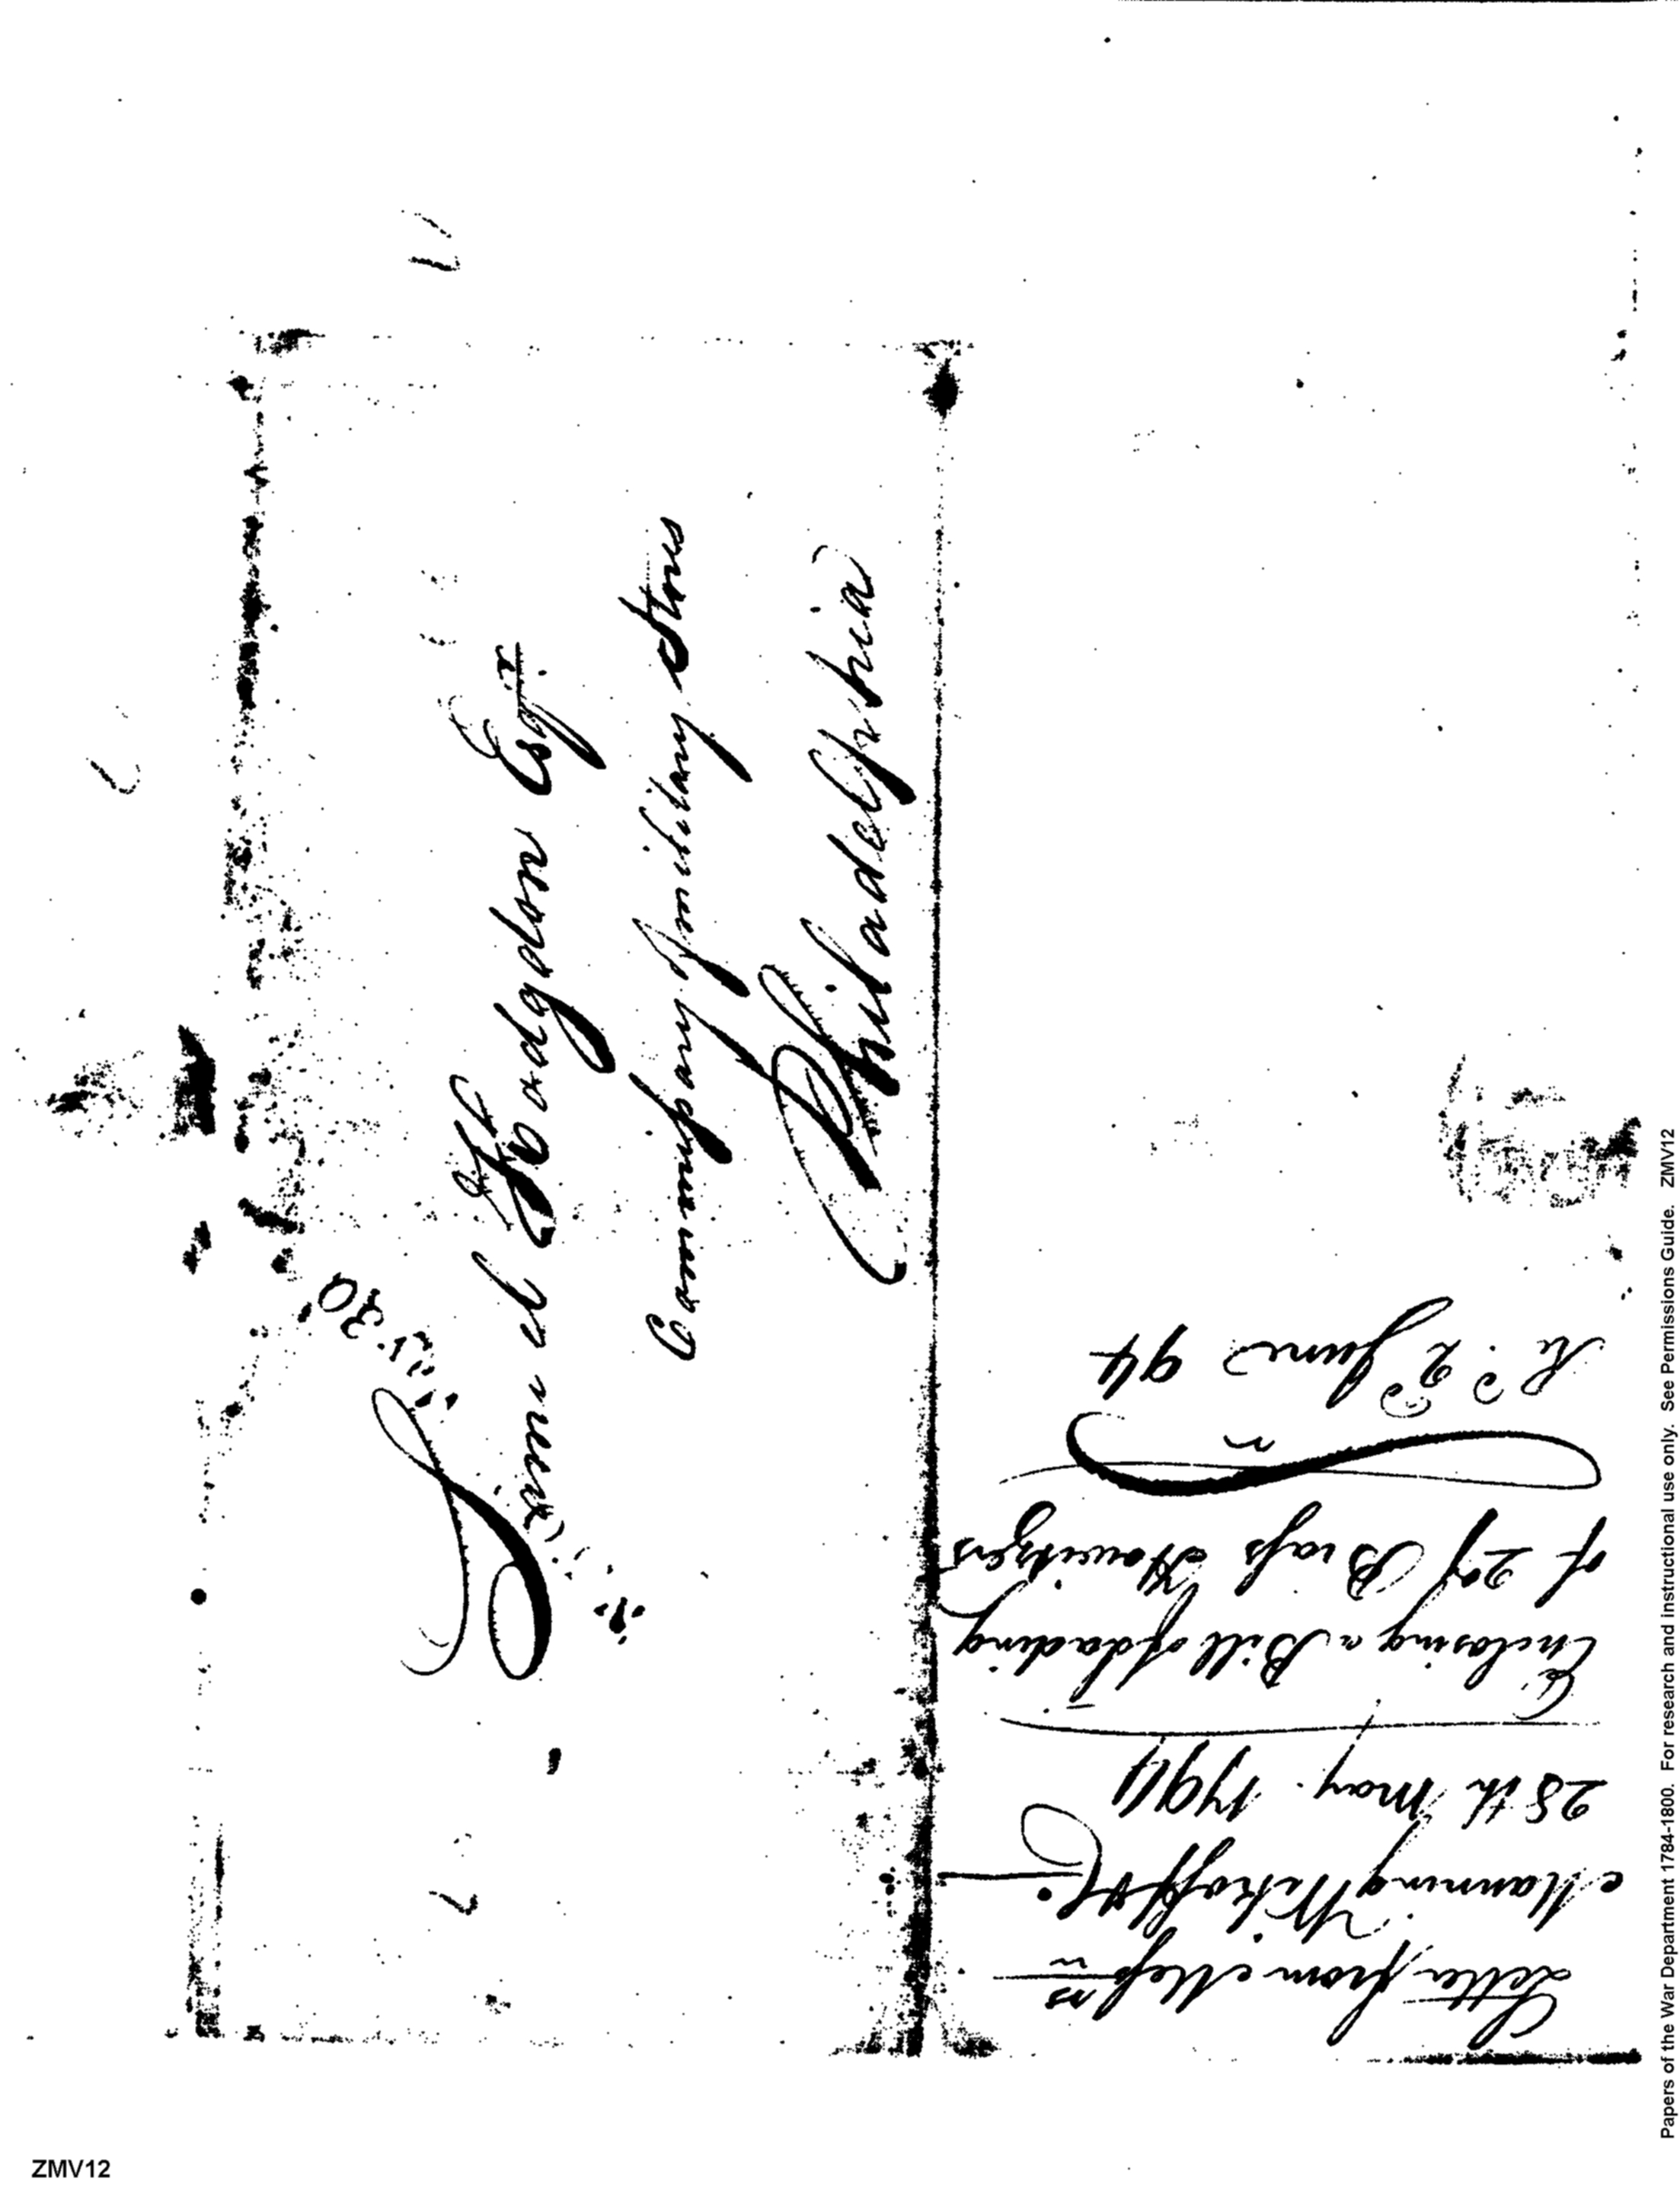 Samuel Hodgdon Esqr
Commisary military Stores
Philadelphia
Letter from Messrs
Manning Wikoff &
28th May. 1794
Enclosing a Bill of Lading
of 27 Brass Howitzers
Rd. 2d June 94
Papers of the War Department 1784-1800. For research and instructional use only. See Permissions Guide. ZMV12
ZMV12